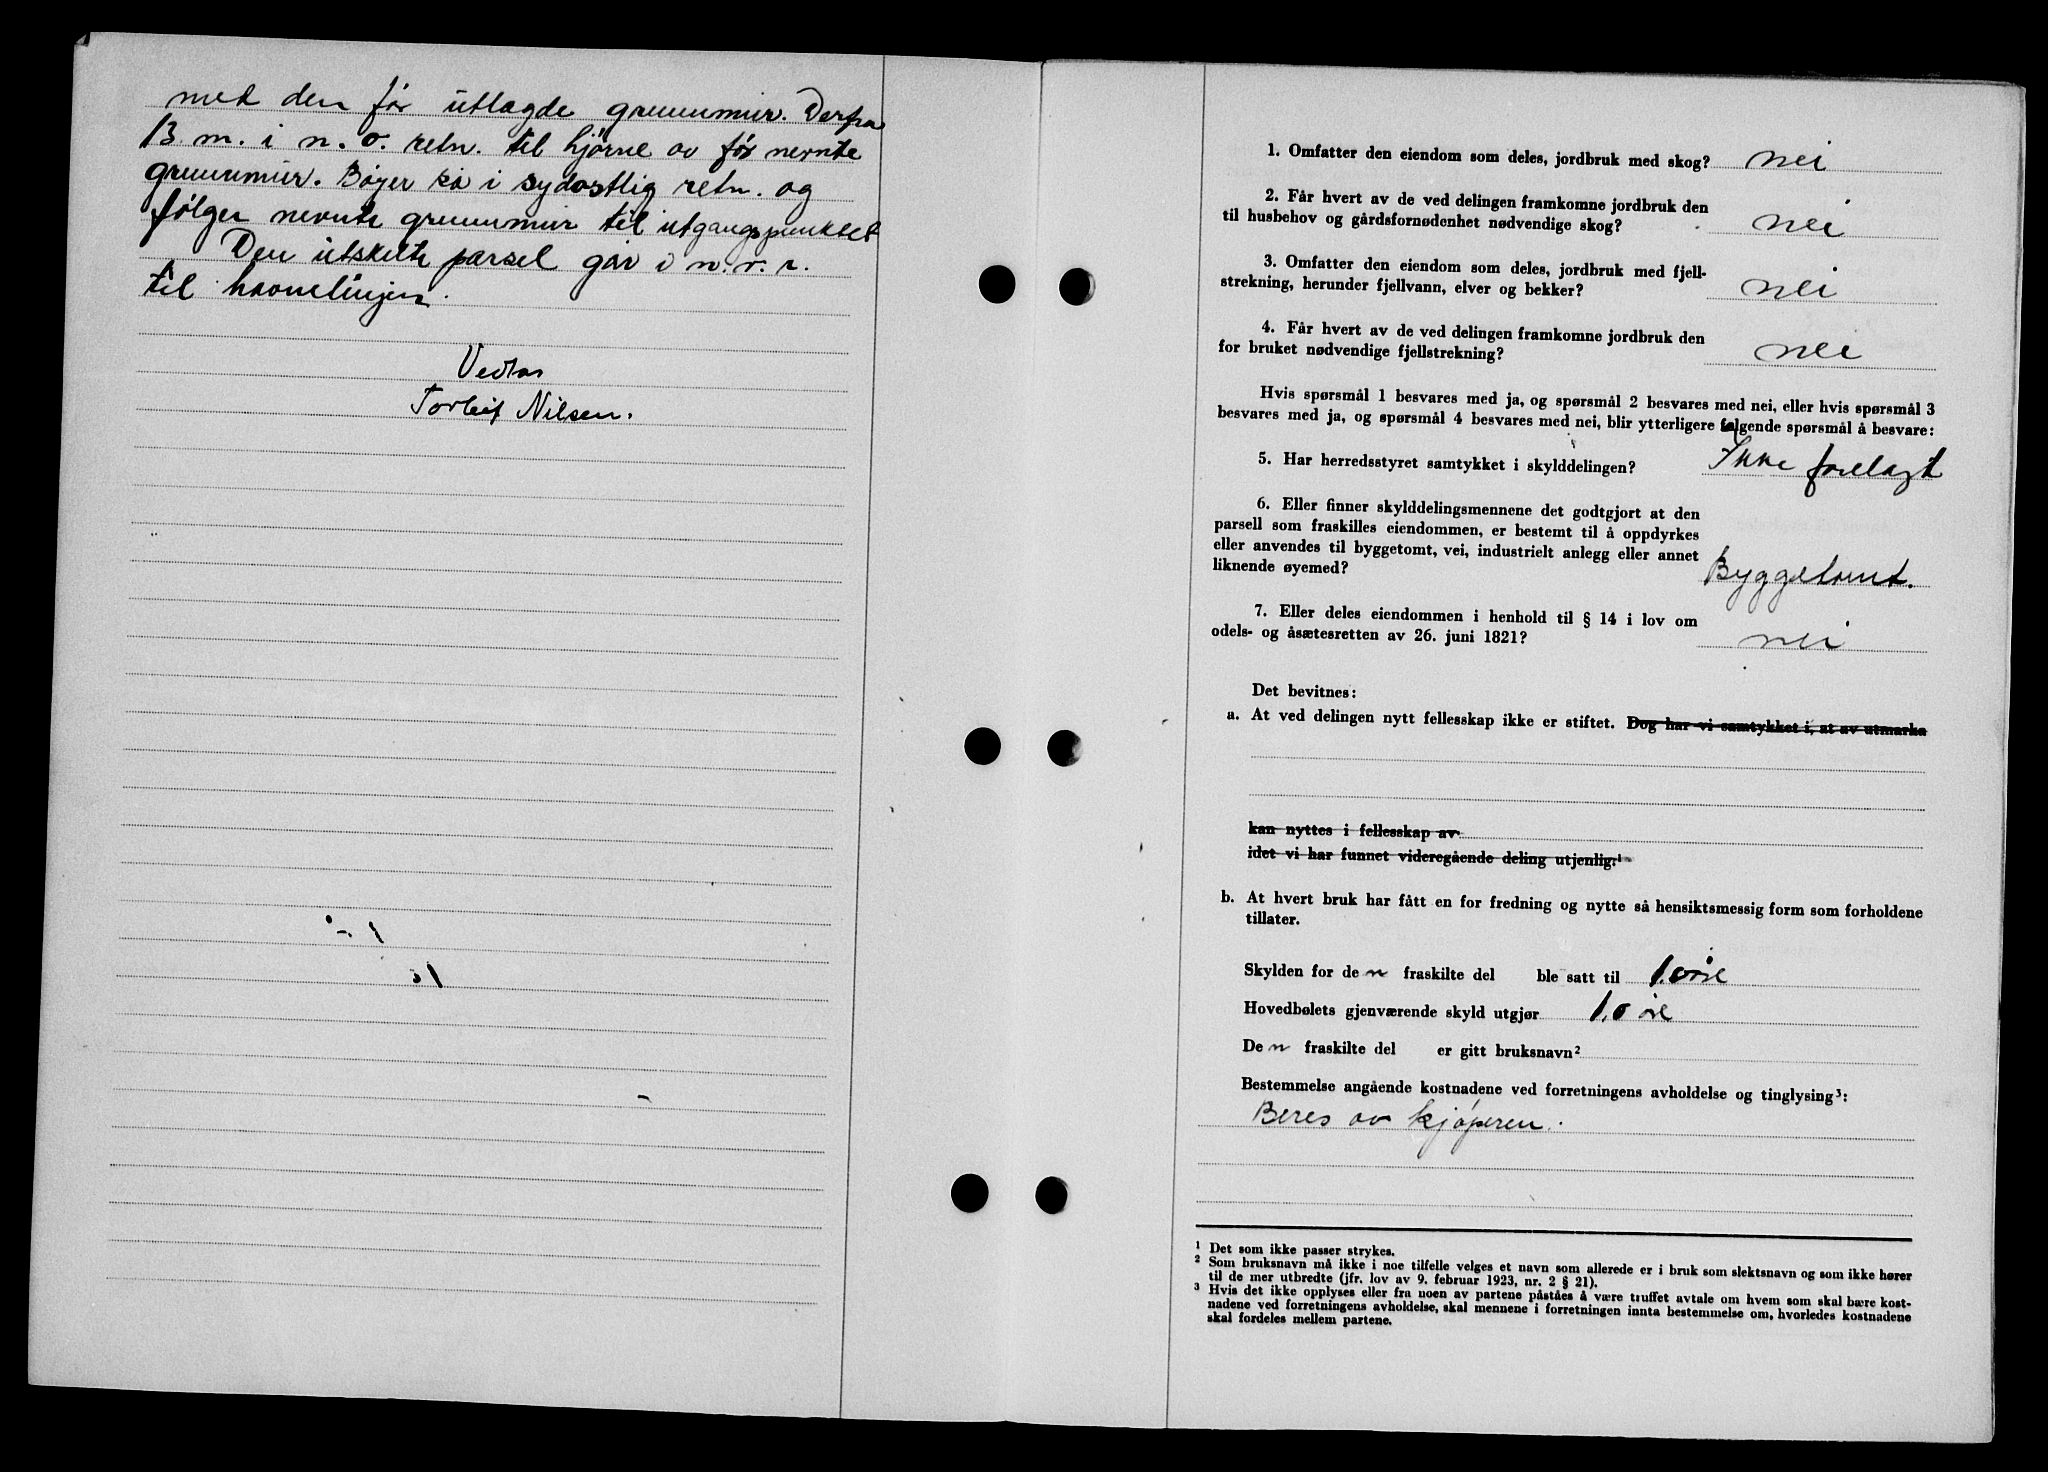 med den før utlagde grunnmur. Derfra
13 m. i n. o. retn. til hjørne av før nevnte
grunnmur. Bøyer så i sydostlig retn. og
følger nevnte grunnmur til utgangspunktet
Den utskilte parsel går i n. v. r.
til havnelinjen.
Vedtas
Torleif Nilsen.
1. Omfatter den eiendom som deles, jordbruk med skog? nei
2. Får hvert av de ved delingen framkomne jordbruk den
til husbehov og gårdsfornødenhet nødvendige skog? nei
3. Omfatter den eiendom som deles, jordbruk med fjell-
strekning, herunder fjellvann, elver og bekker? nei
4. Får hvert av de ved delingen framkomne jordbruk den
for bruket nødvendige fjellstrekning? nei
Hvis spørsmål 1 besvares med ja, og spørsmål 2 besvares med nei, eller hvis spørsmål 3
besvares med ja, og spørsmål 4 besvares med nei, blir ytterligere følgende spørsmål å besvare:
5. Har herredsstyret samtykket i skylddelingen? Ikke forelagt
6. Eller finner skylddelingsmennene det godtgjort at den
parsell som fraskilles eiendommen, er bestemt til å oppdyrkes
eller anvendes til byggetomt, vei, industrielt anlegg eller annet
liknende øyemed? Byggetomt.
7. Eller deles eiendommen i henhold til § 14 i lov om
odels- og åsætesretten av 26. juni 1821? nei
Det bevitnes:
a. At ved delingen nytt fellesskap ikke er stiftet. Dog har vi samtykket i, at av utmarka
kan nyttes i fellesskap av
idet vi har funnet videregående deling utjenlig.¹
b. At hvert bruk har fått en for fredning og nytte så hensiktsmessig form som forholdene
tillater.
Skylden for den fraskilte del ble satt til 1 øre
Hovedbølets gjenværende skyld utgjør 1.0 øre
Den fraskilte del er gitt bruksnavn²
Bestemmelse angående kostnadene ved forretningens avholdelse og tinglysing³:
Beres av kjøperen.
¹ Det som ikke passer strykes.
² Som bruksnavn må ikke i noe tilfelle velges et navn som allerede er i bruk som slektsnavn og som ikke hører
til de mer utbredte (jfr. lov av 9. februar 1923, nr. 2 § 21).
³ Hvis det ikke opplyses eller fra noen av partene påståes å være truffet avtale om hvem som skal bære kost-
nadene ved forretningens avholdelse, skal mennene i forretningen innta bestemmelse om, hvorledes kostnadene
skal fordeles mellem partene.